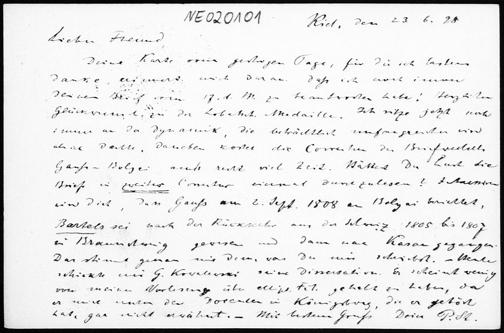 NE020101
Kiel, den 23.6.98
Lieber Freund,
Deine Karte vom gestrigen Tage, für die ich bestens
danke, erinnert mich daran, daß ich noch immer
Deinen Brief vom 17. d. M. zu beantworten habe! Herzlichen
Glückwunsch zu der Lobatsch. Medaille. Ich sitze jetzt noch
immer an der Dynamik, die beträchtlich umfangreicher wird
als ich dachte, daneben kostet die Correctur des Briefwechsels
Gauß-Bolyai auch recht viel Zeit. Hättest Du Lust die
Briefe in zweiter Correctur einmal durchzulesen?
wird Dich, daß Gauß am 2. Sept. 1808 an Bolyai berichtet,
Bartels sei nach der Rückkehr aus der Schweiz 1805 bis 1807
in Braunschweig gewesen und dann nach Kasan gegangen.
Das stimmt genau mit dem, was Du mir schreibst. Heute
schickte mir G. Kowalewski seine Dissertation. Er scheint wenig
von meiner Vorlesung über gehabt zu haben, da
er mich unter den Docenten in Königsberg, die er gehört
hat, gar nicht erwähnt. Mit bestem Gruß Dein P. St.